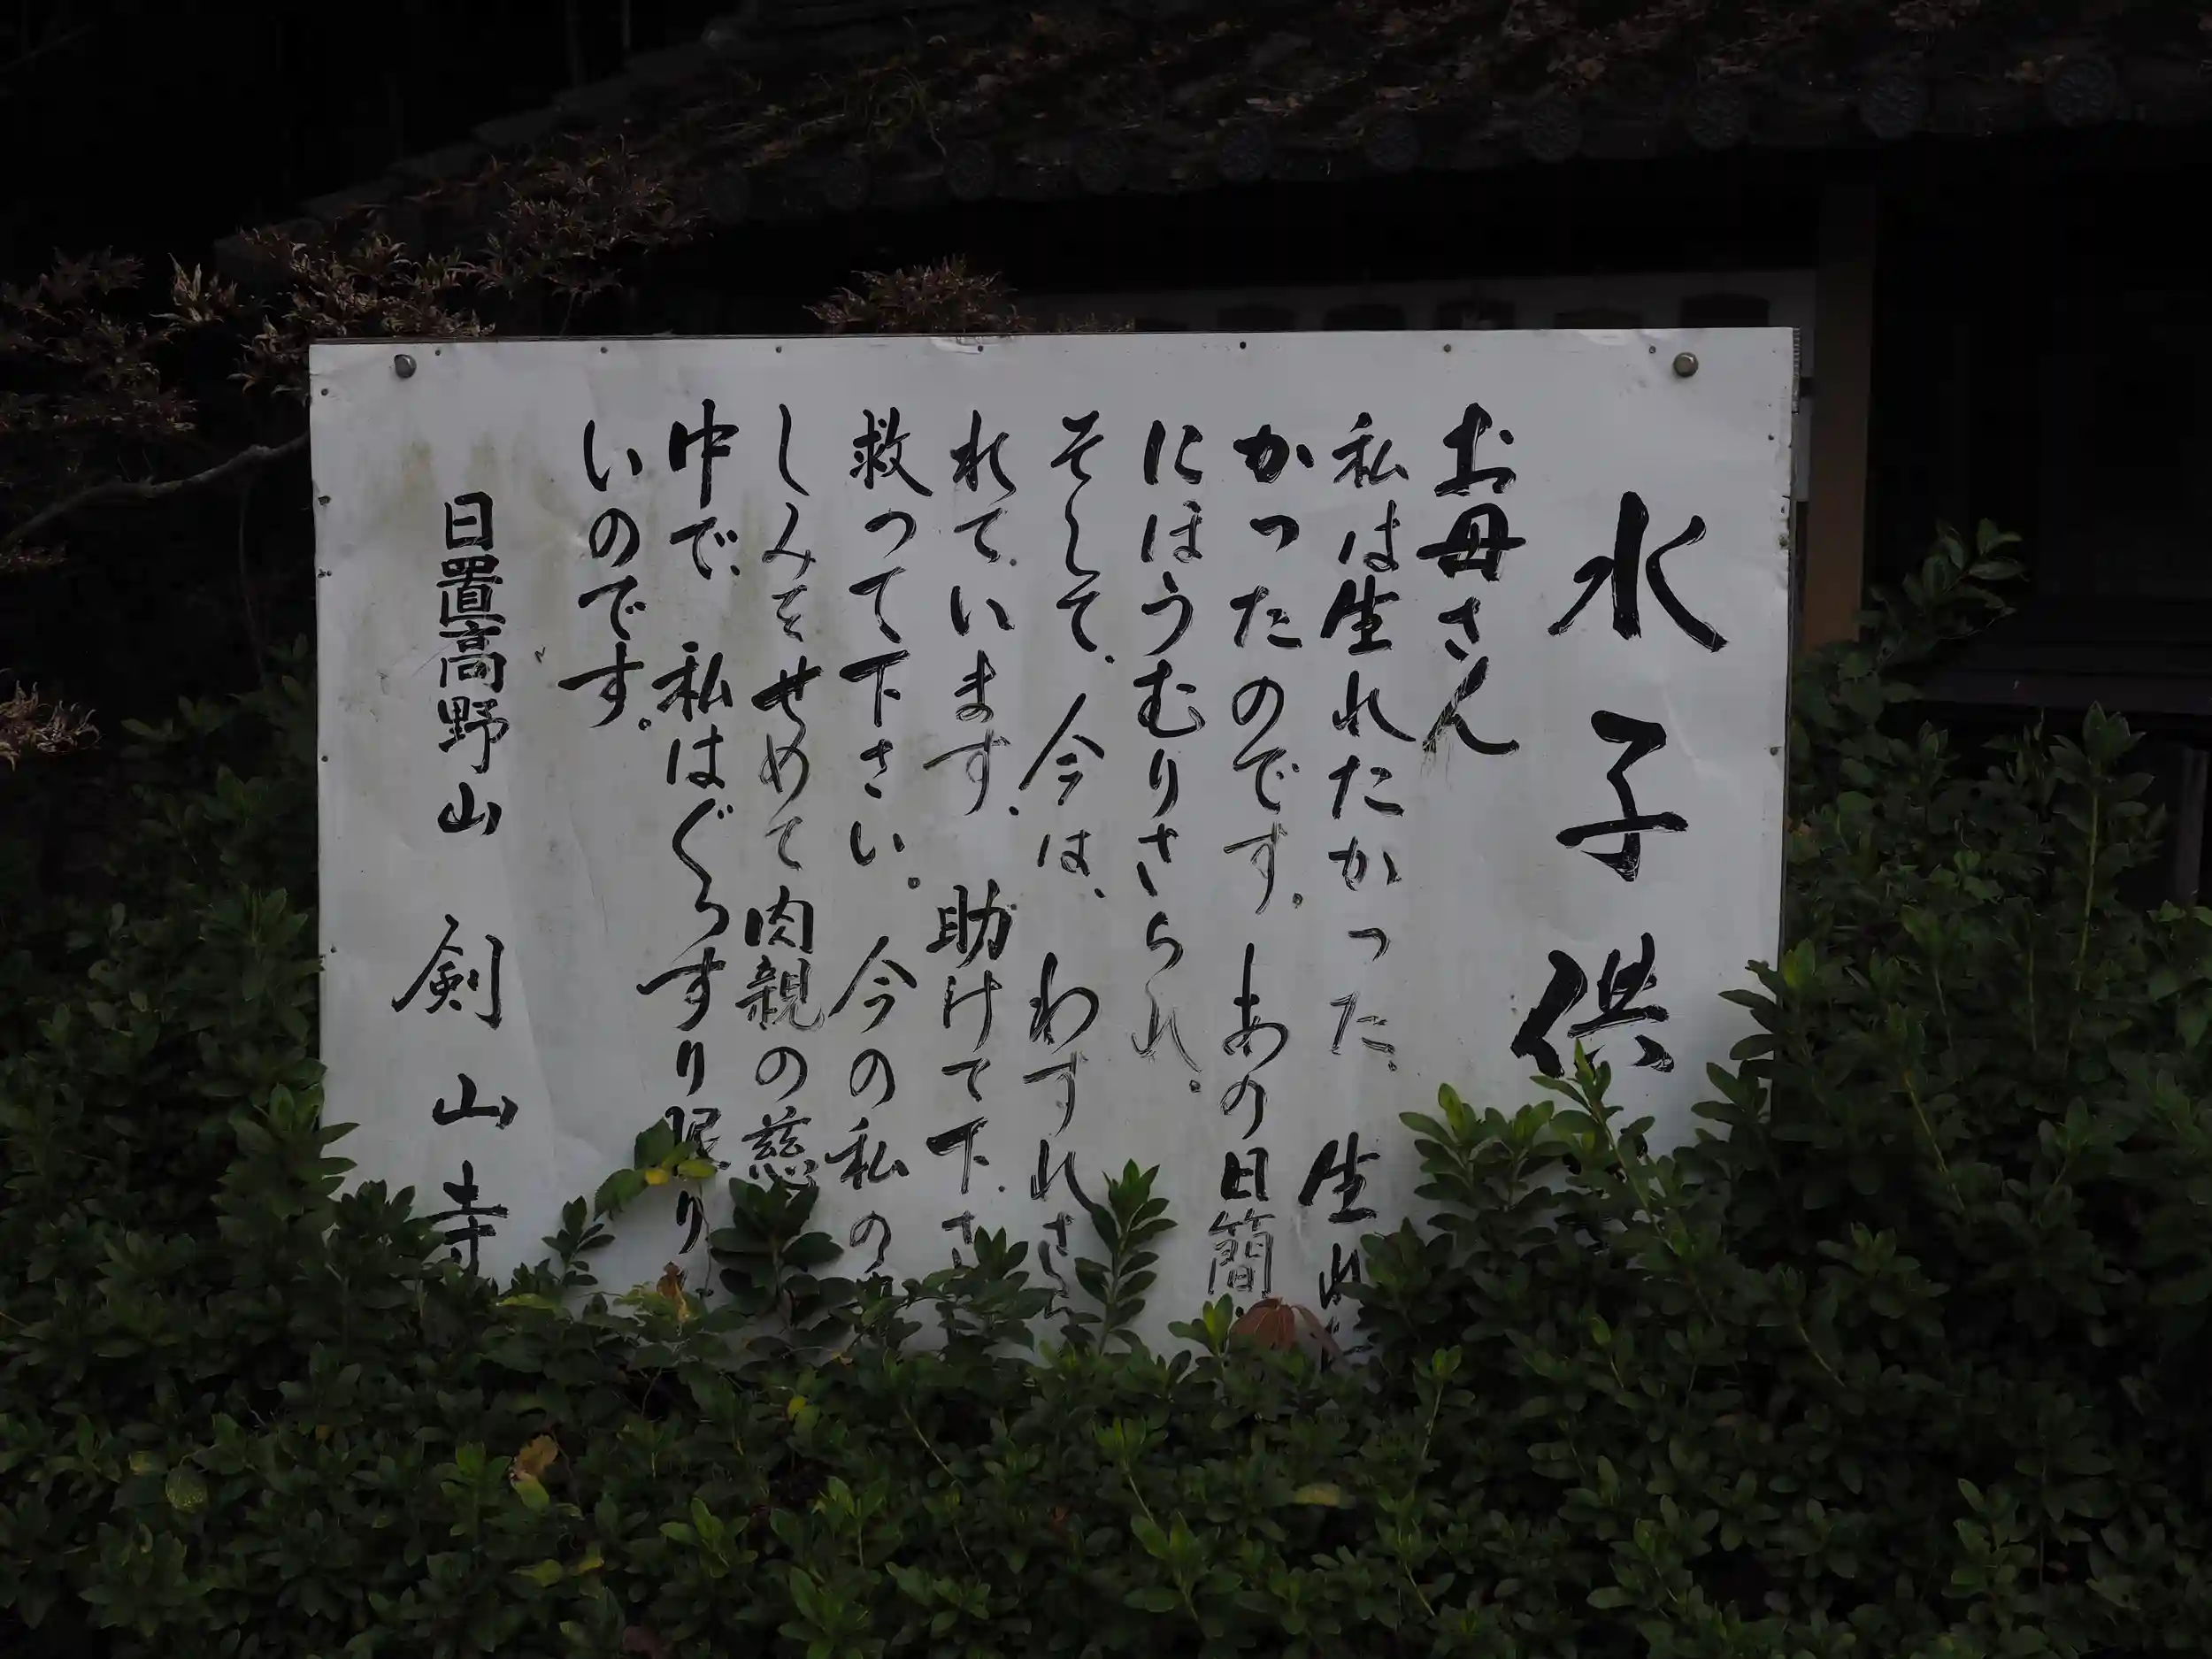 水子供
お母さん
私は生れたかった。生れ
かったのです。あの日簡
にほうむりさられ。
そして、今は、わすれさら
れています。助けて下さ
救って下さい。今の私の
しみをせめて肉親の慈
中で、私はぐっすり眠り
いのです。
日置高野山 剣山寺